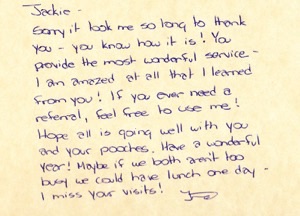 Jackie -
Sorry it took me so long to thank
you - you know how it is! You
provide the most wonderful service -
I am amazed at all that I learned
from you! If you ever need a
referral, feel free to use me!
Hope all is going well with you
and your pooches. Have a wonderful
year! Maybe if we both aren't too
busy we could have lunch one day -
I miss your visits!